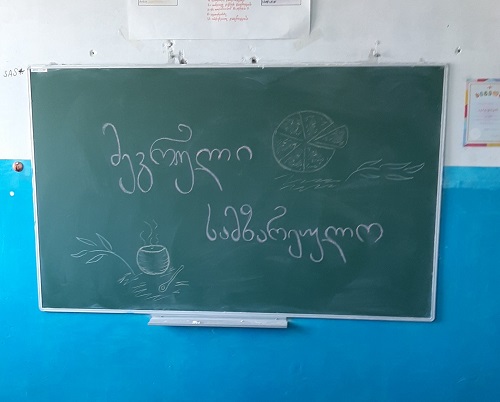 მეგრული
სამზარეულო